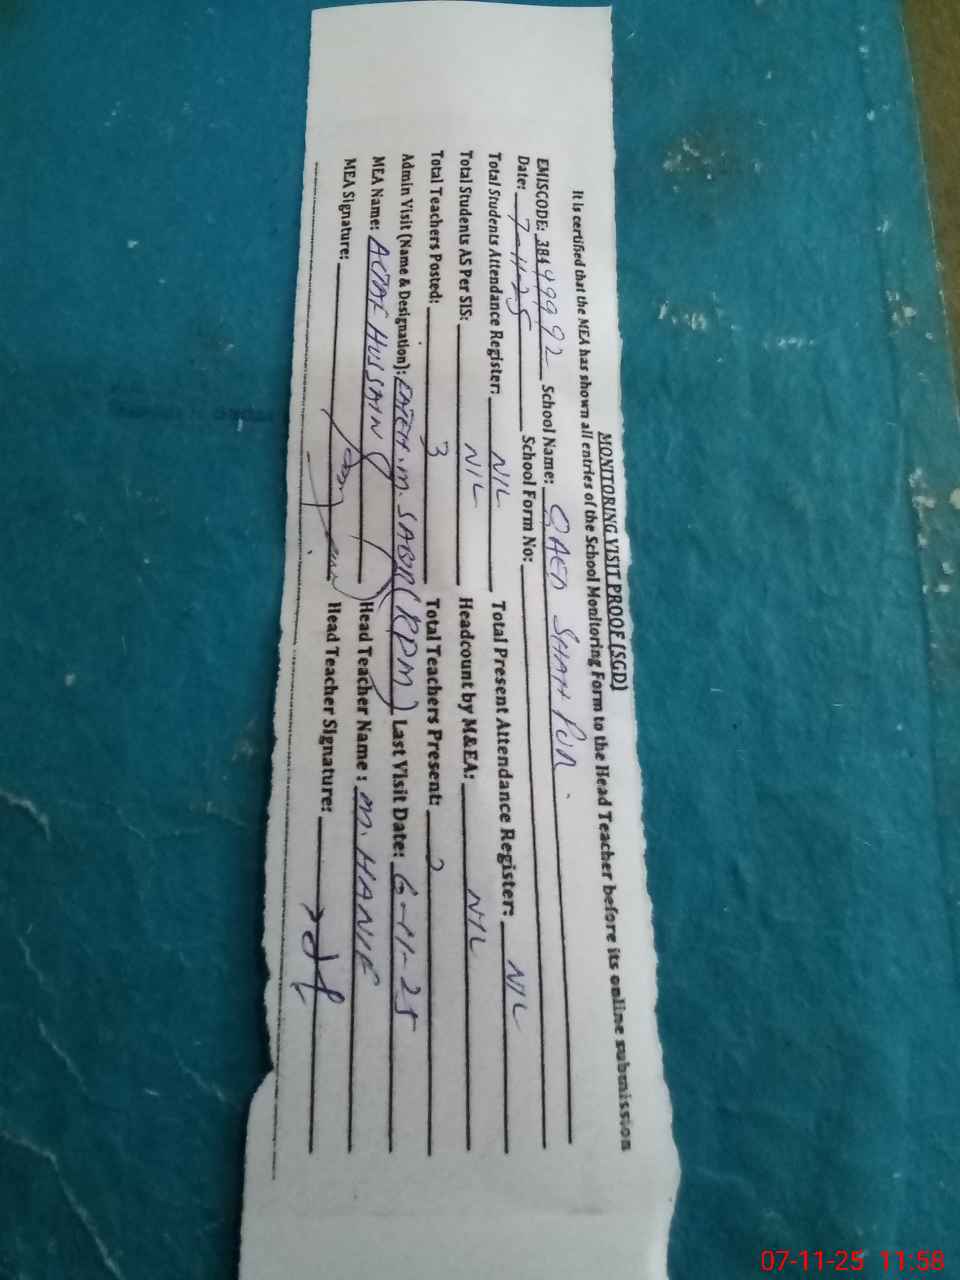 MONITORING VISIT PROOF (SGD)
It is certified that the MEA has shown all entries of the School Monitoring Form to the Head Teacher before its online submission
EMISCODE: 38449992 School Name: QAED SHAH PUR
Date: 7-11-25 School Form No:
Total Students Attendance Register: NIL Total Present Attendance Register: NIL
Total Students AS Per SIS: NIL Headcount by M&EA: NIL
Total Teachers Posted: 3 Total Teachers Present:
Admin Visit (Name & Designation): M. SABIR (RPM) Last Visit Date: 6-11-25
MEA Name: ALTAF HUSSAIN Head Teacher Name: M. HANIF
MEA Signature: Head Teacher Signature:
07-11-25 11:58